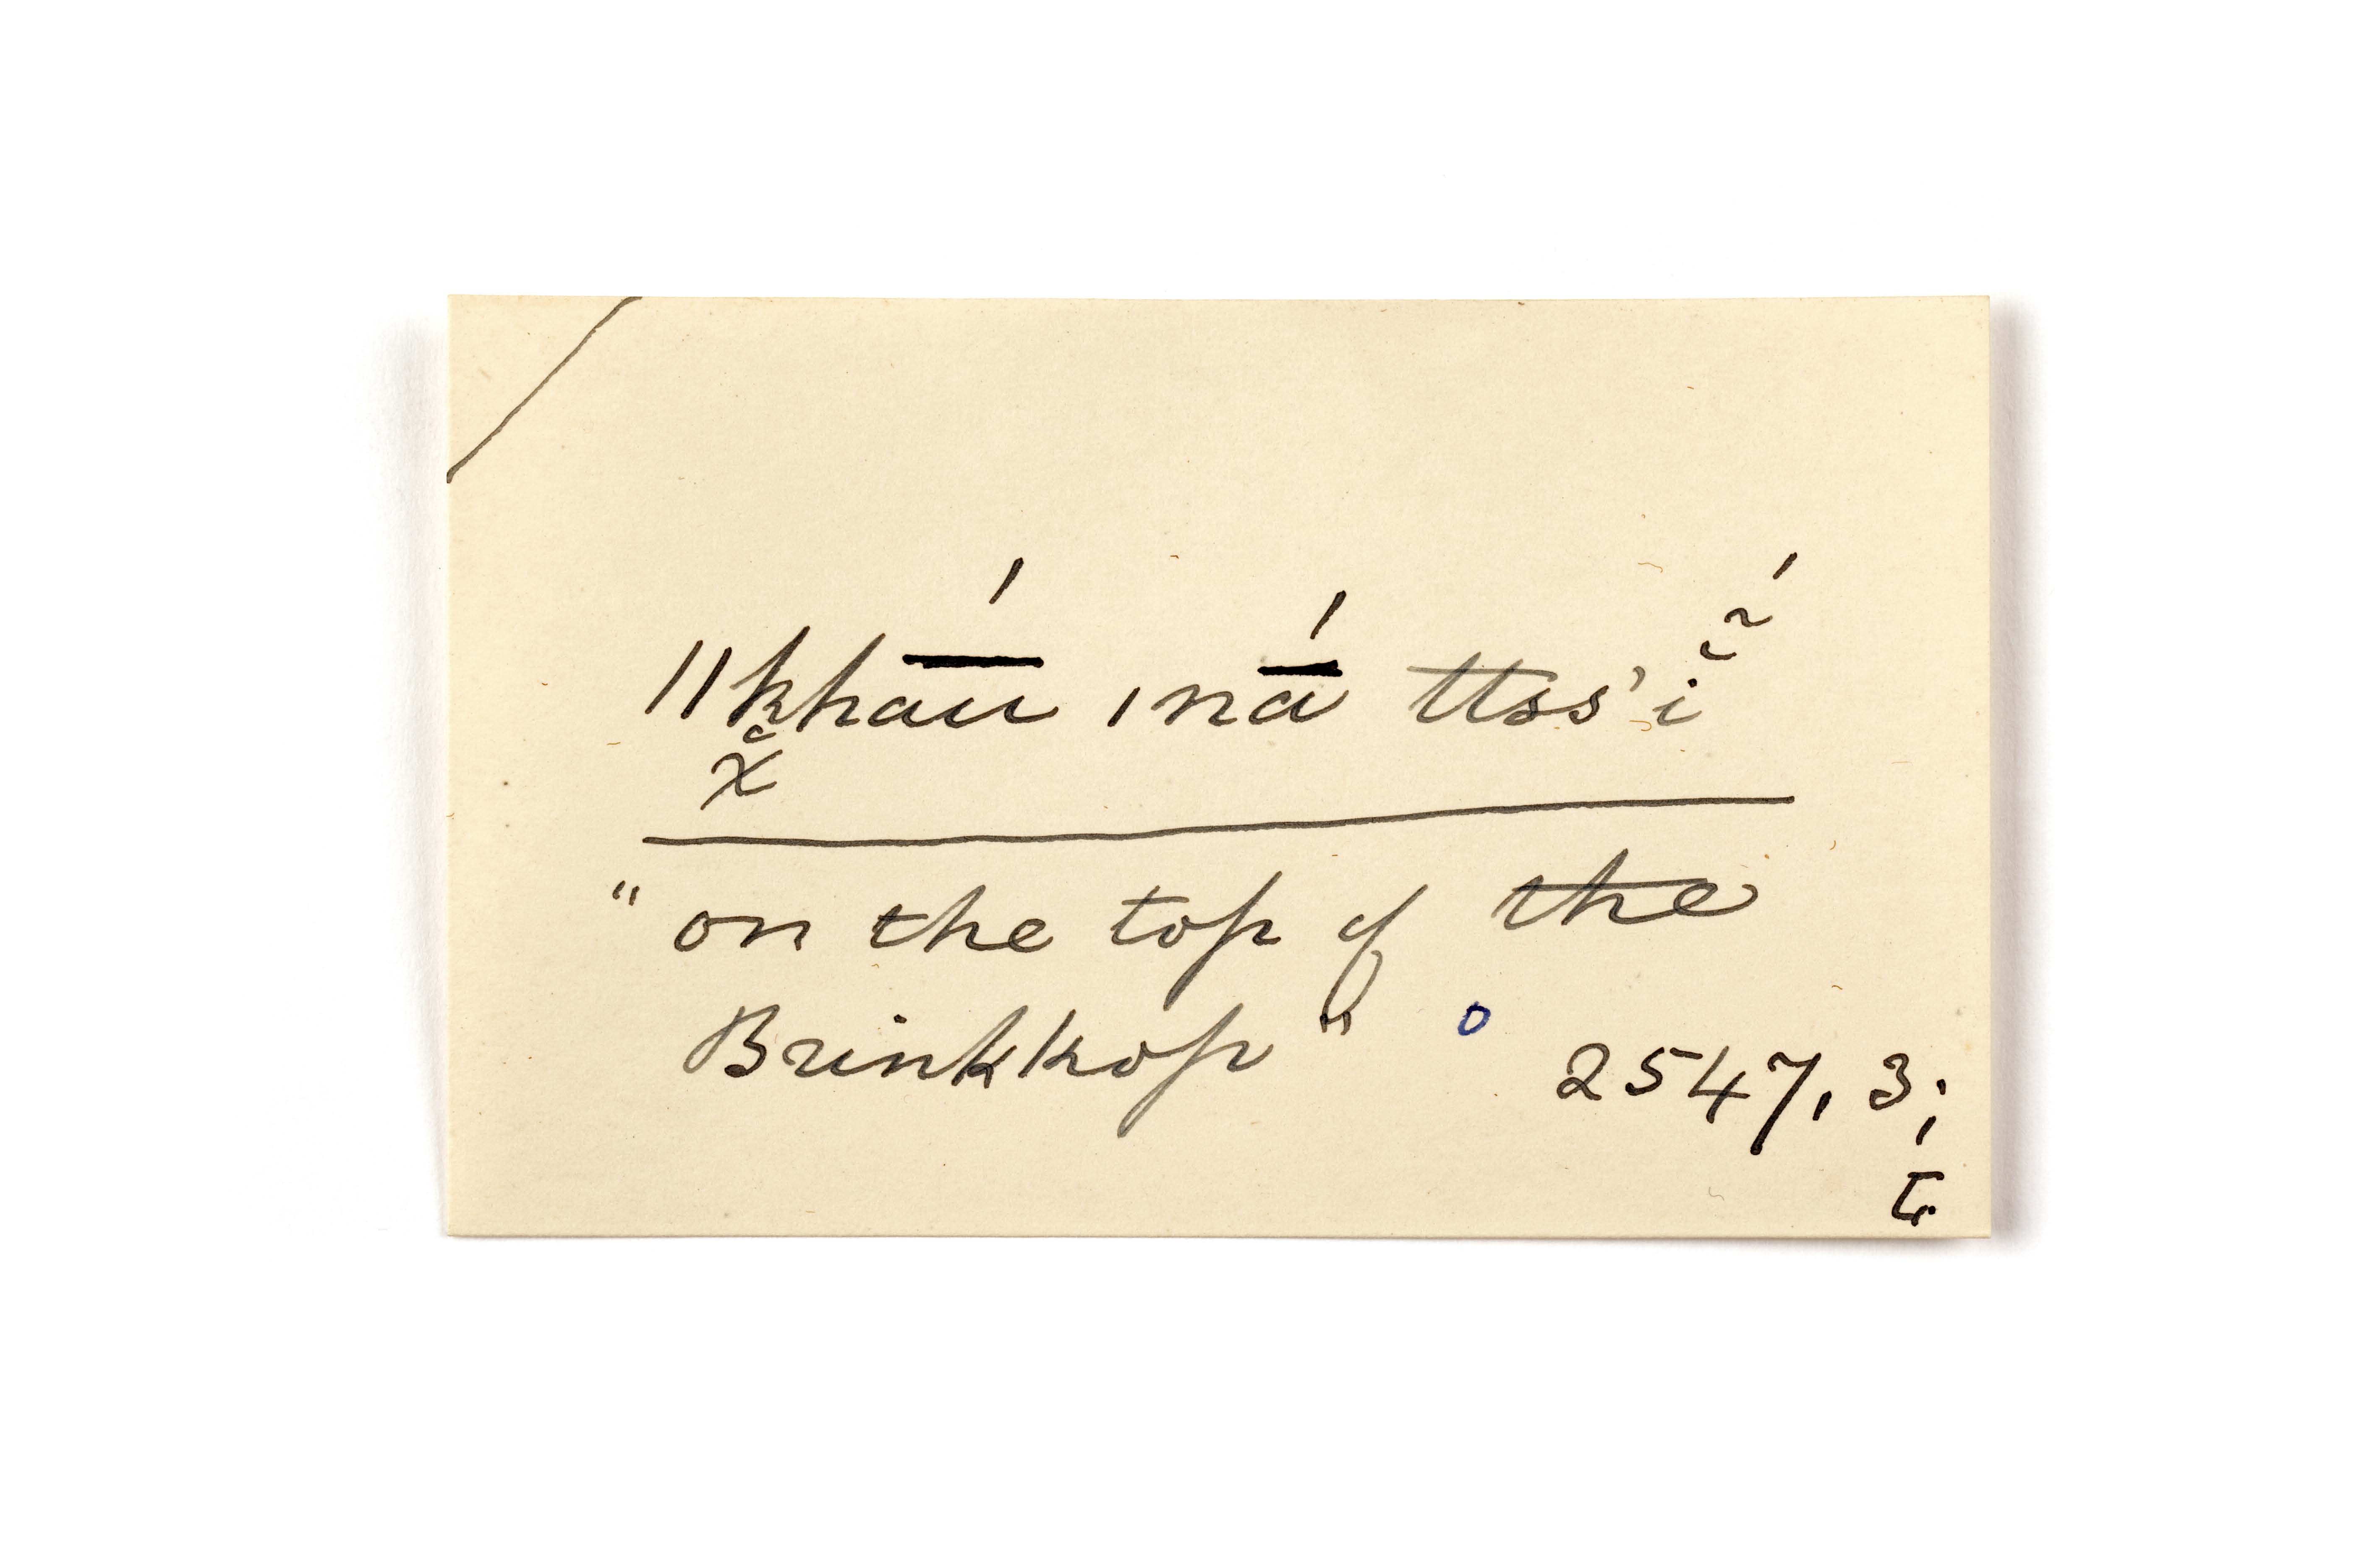 ǁkhā́ū ǀnā́ ttss'ĩ̆́
χ̆
"on the top of the
Brinkkop" o
2547, 3;